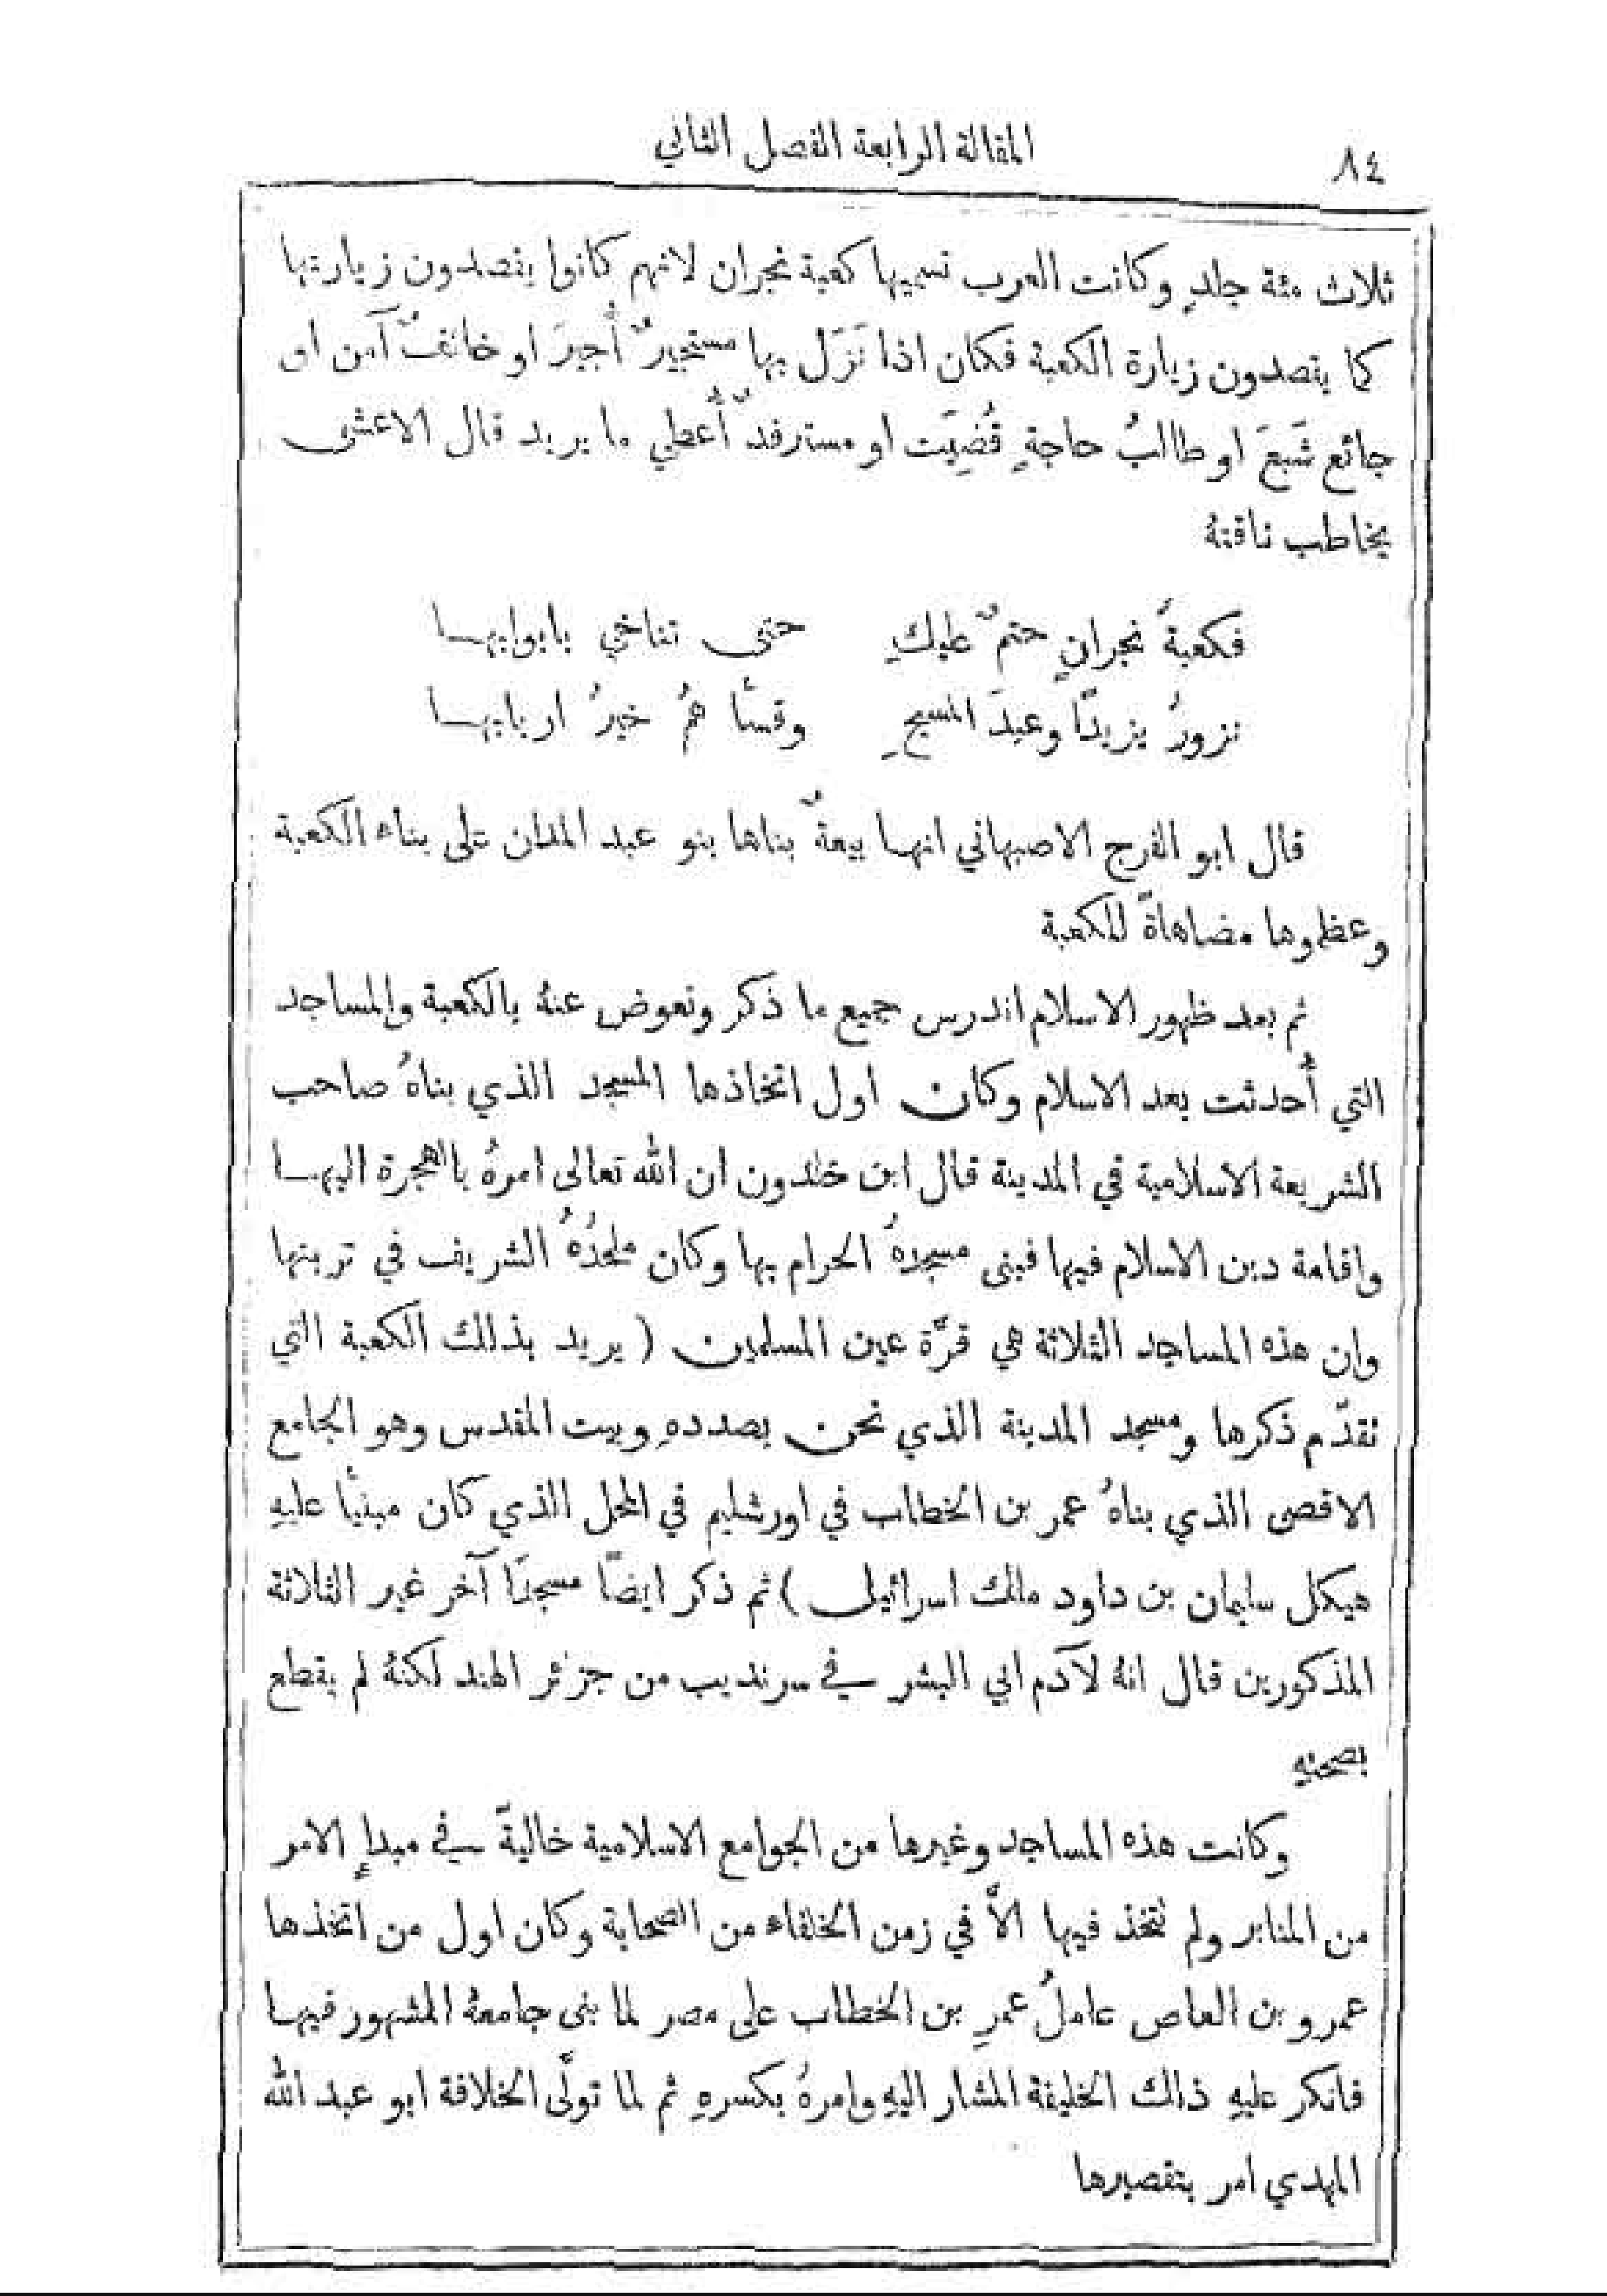 ٨٤
المقالة الرابعة الفصل الثاني
ثلاث مئة جلدٍ وكانت العرب تسميها كعبة نجران لانهم كانوا يقصدون زيارتها
كما يقصدون زيارة الكعبة فكان اذا نَزَل بها مستجيرٌ أُجيرَ او خائفٌ آمن او
جائع شَبعَ او طالبُ حاجةٍ قُضِيَت او مسترفدٌ أُعطي ما يريد قال الاعشى
يخاطب ناقتهُ
فكعبةُ نجرانِ حتمٌ عليكِ حتى تناخي بابوابهـا
نزورُ يزيدًا وعبدَ المسيحِ وقسًا همُ خيرُ اربابهـا
قال ابو الفرج الاصبهاني انهـا بيعةٌ بناها بنو عبد المدان على بناء الكعبة
وعظموها مضاهاةً للكعبة
ثم بعد ظهور الاسلام اندرس جميع ما ذكر وتعوض عنهُ بالكعبة والمساجد
التي أُحدثت بعد الاسلام وكان اول اتخاذها المسجد الذي بناهُ صاحب
الشريعة الاسلامية في المدينة قال ابن خلدون ان الله تعالى امرهُ بالهجرة اليهـا
واقامة دين الاسلام فيها فبنى مسجدهُ الحرام بها وكان ملحدُهُ الشريف في تربتها
وان هذه المساجد الثلاثة هي قرَّة عين المسلمين ( يريد بذلك الكعبة التي
تقدَّم ذكرها ومسجد المدينة الذي نحن بصددهِ وبيت المقدس وهو الجامع
الاقصى الذي بناهُ عمر بن الخطاب في اورشليم في المحل الذي كان مبنيًا عليهِ
هيكل سليمان بن داود ملك اسرائيل ) ثم ذكر ايضًا مسجدًا آخر غير الثلاثة
المذكورين قال انهُ لآدم ابي البشر في سرنديب من جزئر الهند لكنهُ لم يقطع
بصحتهِ
وكانت هذه المساجد وغيرها من الجوامع الاسلامية خاليةً في مبدإِ الامر
من المنابر ولم تُتخذ فيها الاَّ في زمن الخلفاء من الصحابة وكان اول من اتخذها
عمرو بن العاص عاملُ عمرِ بن الخطاب على مصر لما بنى جامعهُ المشهور فيهـا
فانكر عليهِ ذلك الخليفة المشار اليهِ وامرهُ بكسرهِ ثم لما تولَّى الخلافة ابو عبد الله
المهدي امر بتقصيرها